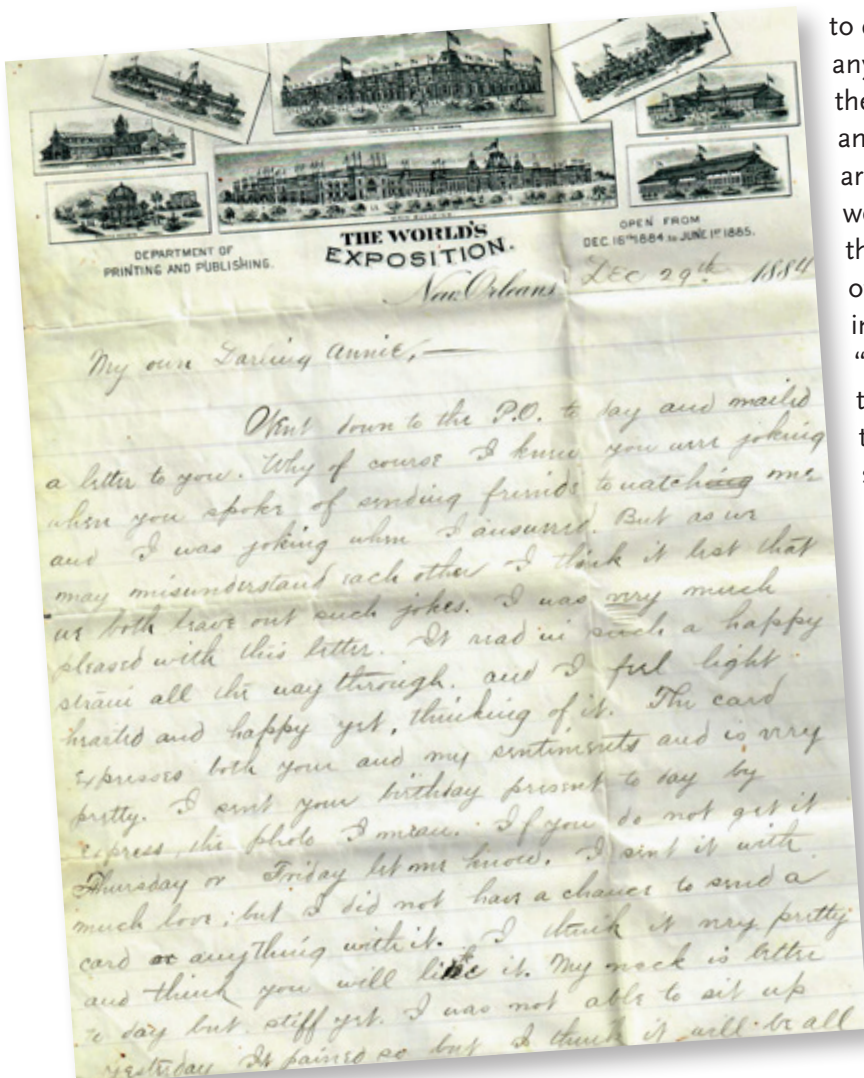 DEPARTMENT OF
PRINTING AND PUBLISHING.
THE WORLD'S
EXPOSITION.
OPEN FROM
DEC 16TH 1884 TO JUNE 1ST 1885.
New Orleans Dec 29th 1884
My own Darling Annie,—
Went down to the P.O. to day and mailed
a letter to you. Why of course I knew you were joking
when you spoke of sending friends to watching me
and I was joking when I answered. But as we
may misunderstand each other I think it best that
we both leave out such jokes. I was very much
pleased with this letter. It read in such a happy
strain all the way through. and I feel light
hearted and happy yet, thinking of it. The card
expresses both your and my sentiments and is very
pretty. I sent your birthday present to day by
express, the photo I mean. If you do not get it
Thursday or Friday let me know. I sent it with
much love, but I did not have a chance to send a
card or anything with it. I think it very pretty
and think you will like it. My neck is better
to day but stiff yet. I was not able to sit up
yesterday It pained so but I think it will be all
to
any
the
an
ar
we
th
o
in
“
t
t
s